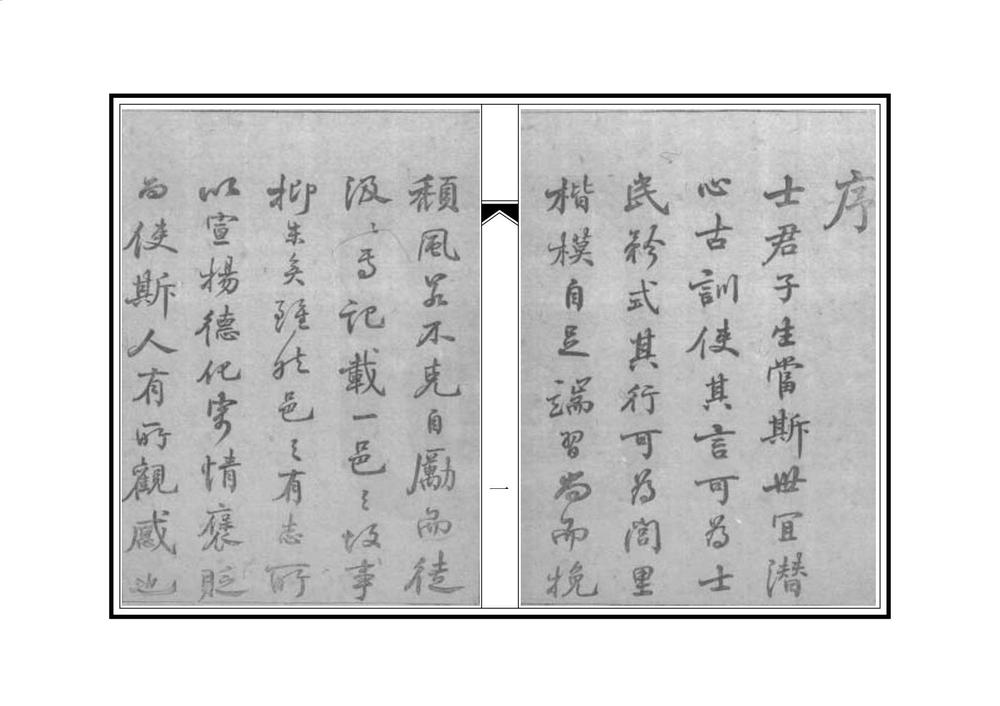 序
士君子生當斯世宜潛
心古訓使其言可為士
民矜式其行可為閭里
楷模自足端習尚而挽
頹風若不克自勵而徒
汲〻焉記載一邑之故事
抑末矣雖然邑之有志所
以宣揚德化寓情褒貶
而使斯人有所觀感也
一